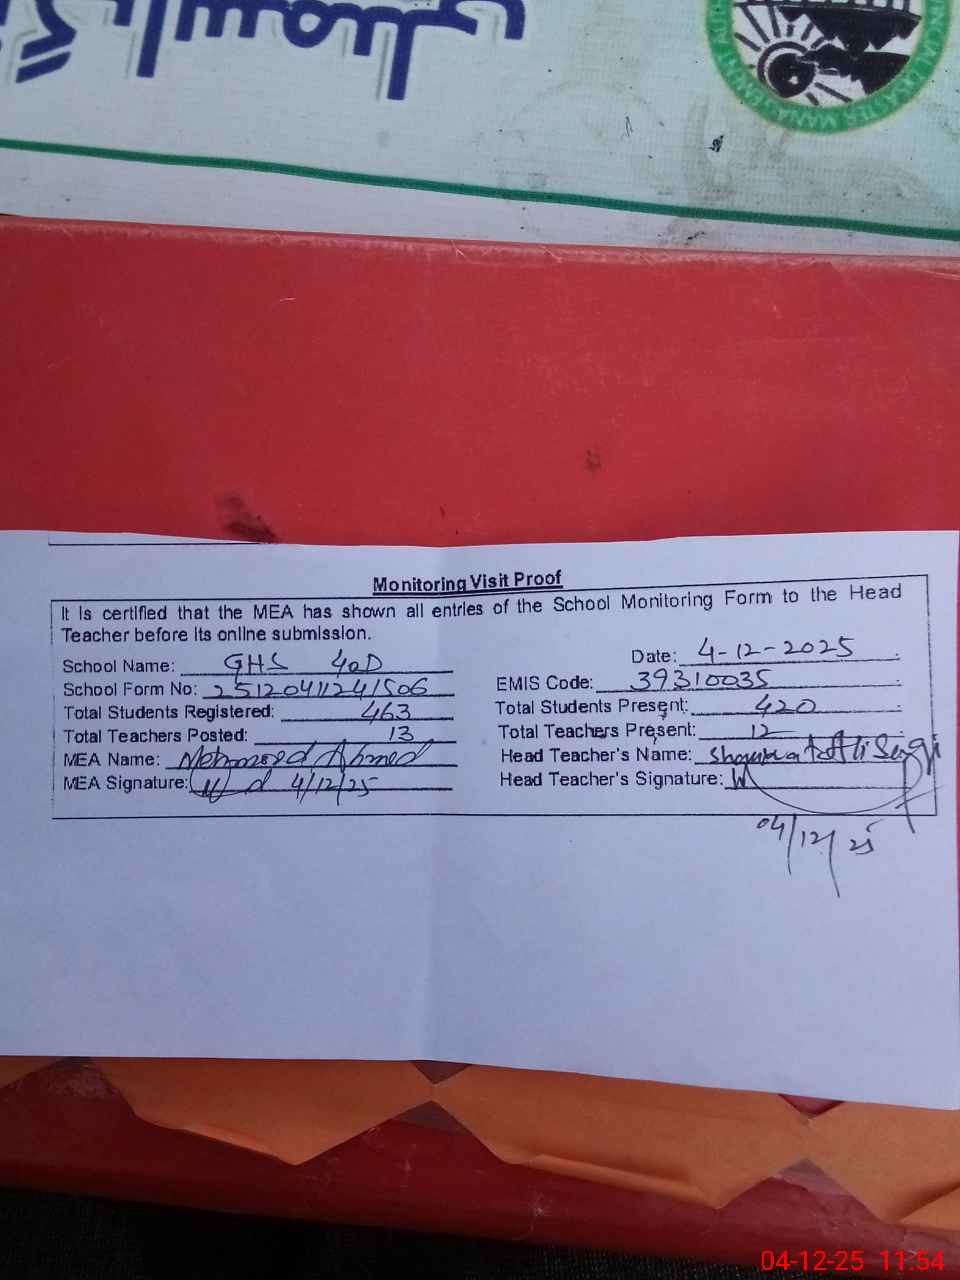 Monitoring Visit Proof
It is certified that the MEA has shown all entries of the School Monitoring Form to the Head
Teacher before its online submission.
School Name: GHS 40D
Date: 4-12-2025
School Form No: 25120411241506
EMIS Code: 39310035
Total Students Registered: 463
Total Students Present: 420
Total Teachers Posted: 13
Total Teachers Present: 12
MEA Name: Ahmed
Head Teacher's Name:
MEA Signature: 4/12/25
Head Teacher's Signature:
04/12/25
04-12-25 11:54